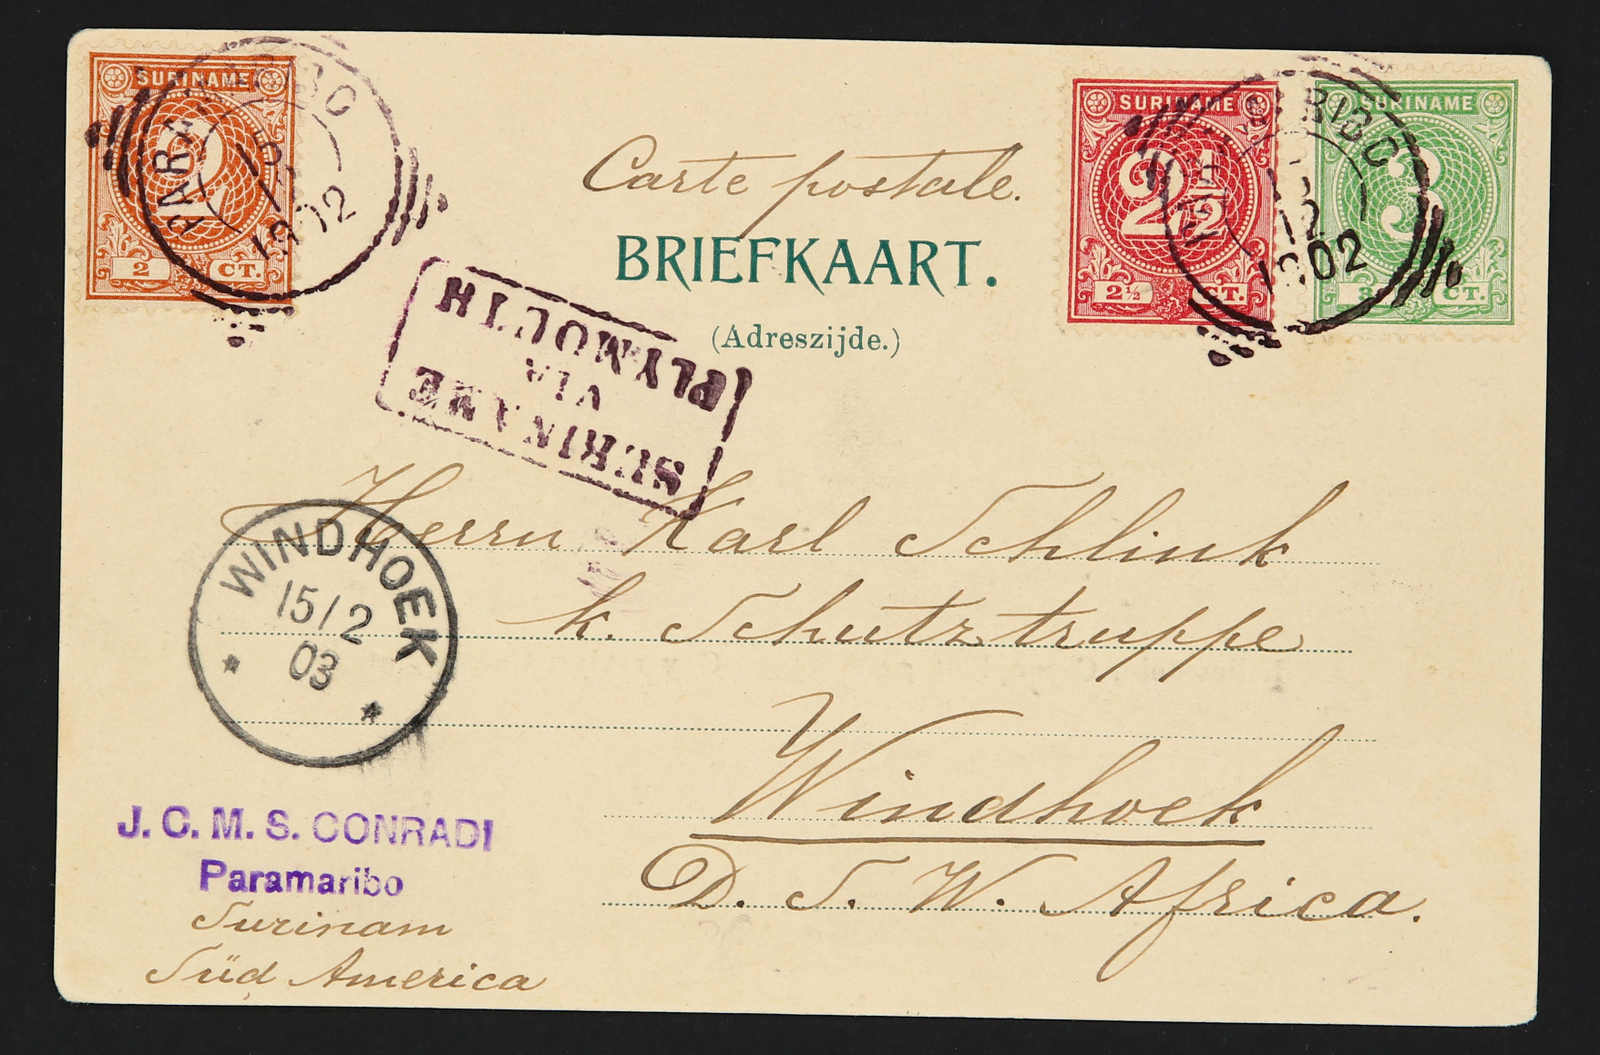 SURINAME
2
2 CT.
PARAMARIBO
1902
Carte postale.
BRIEFKAART.
(Adreszijde.)
SURINAME
2½
2½ CT.
SURINAME
3
3 CT.
12
1902
SURINAME
VIA
PLYMOUTH
Herrn Karl Schlink
k. Schutztruppe
Windhoek
D. S. W. Africa.
WINDHOEK
15/2
03
J. C. M. S. CONRADI
Paramaribo
Surinam
Süd America